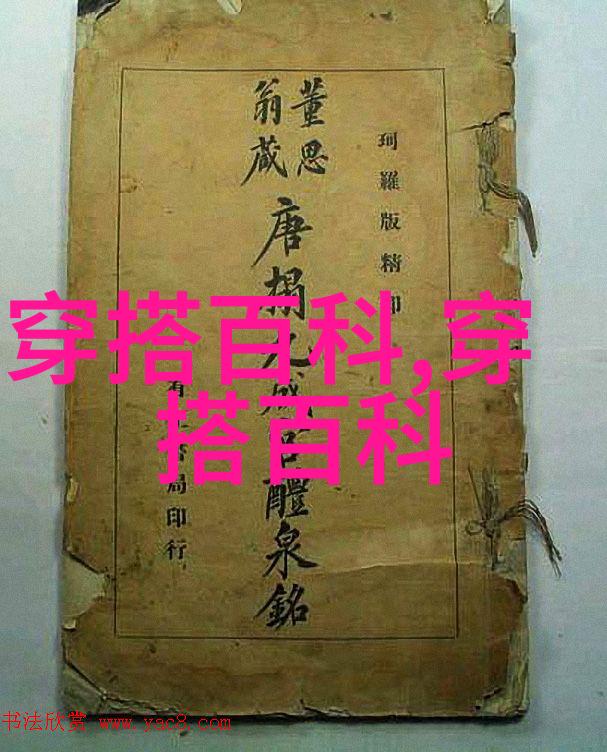 珂羅版精印
董思
翁藏
唐搨九成宮醴泉銘
有
書局印行
穿搭百科,穿
搭百科
书法欣赏 www.yac8.com